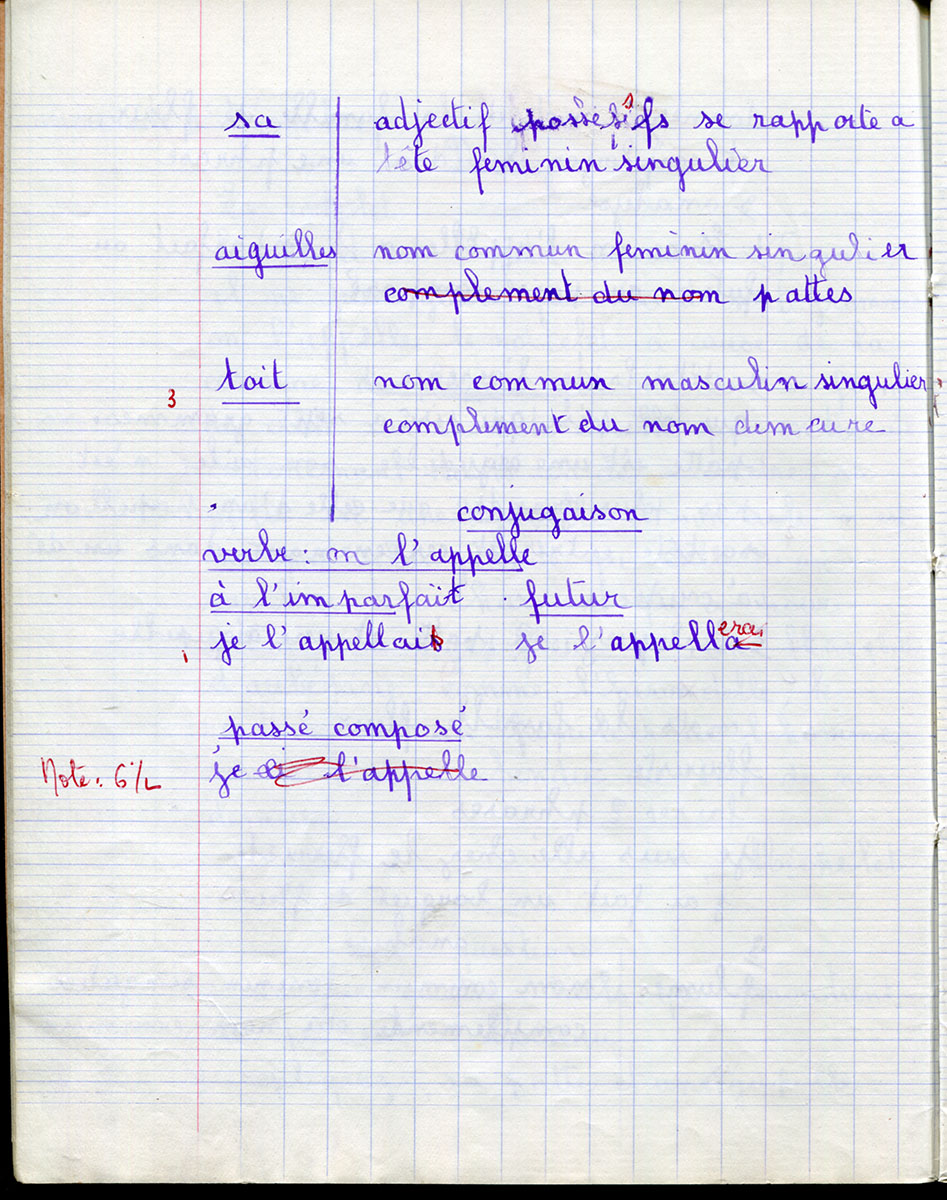 sa adjectif possésifs se rapporte a
s
l'éte feminin singulier
aiguilles nom commun feminin singulier
complement du nom pattes
3 toit nom commun masculin singulier
complement du nom demeure
conjugaison
verbe : m l'appelle
à l'imparfait . futur
1 je l'appellais je l'appella era
passé composé
Note: 6 je l'appelle .